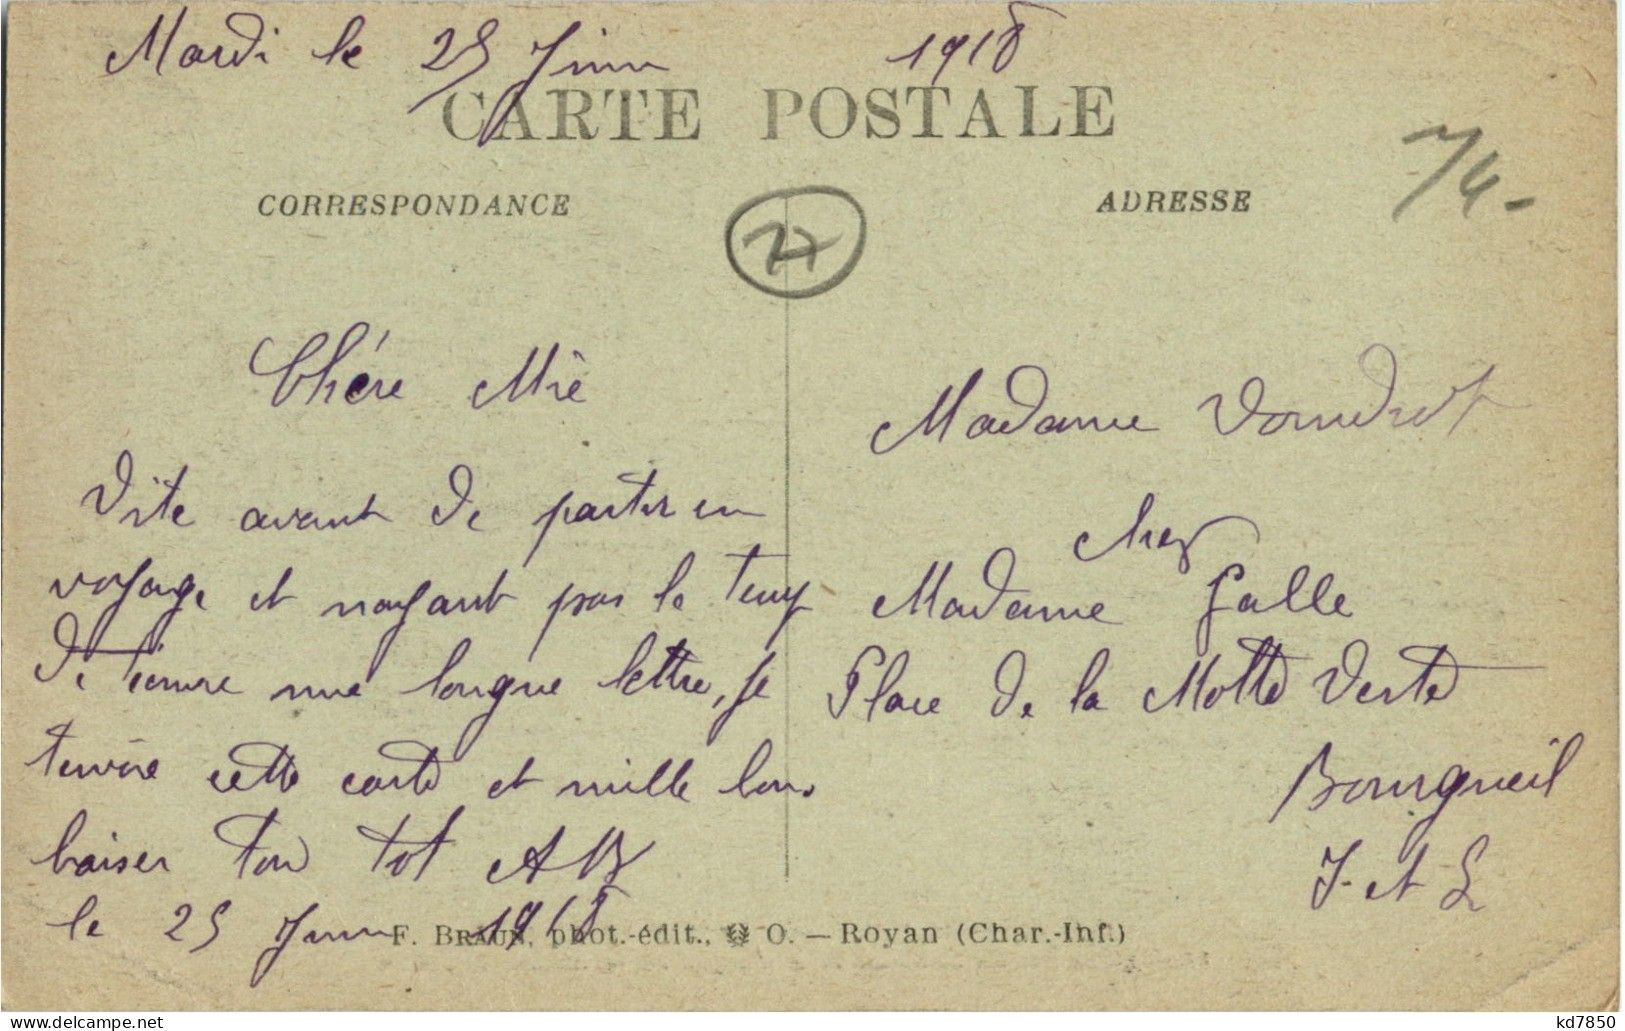 Mardi le 25 Juin 1918
CARTE POSTALE
CORRESPONDANCE
ADRESSE
74-
Chére Mie
Vite avant de partir en
voyage et nayant pas le temp
de une longue lettre, je
cette carte et mille bons
baiser ton tot AB
le 25 Juin 1918
Madame
chez
Madame Galle
Place de la Motte Verte
Bourgueil
I. et L
F. BRAUN, phot.-édit., O. — Royan (Char.-Inf.)
kd7850